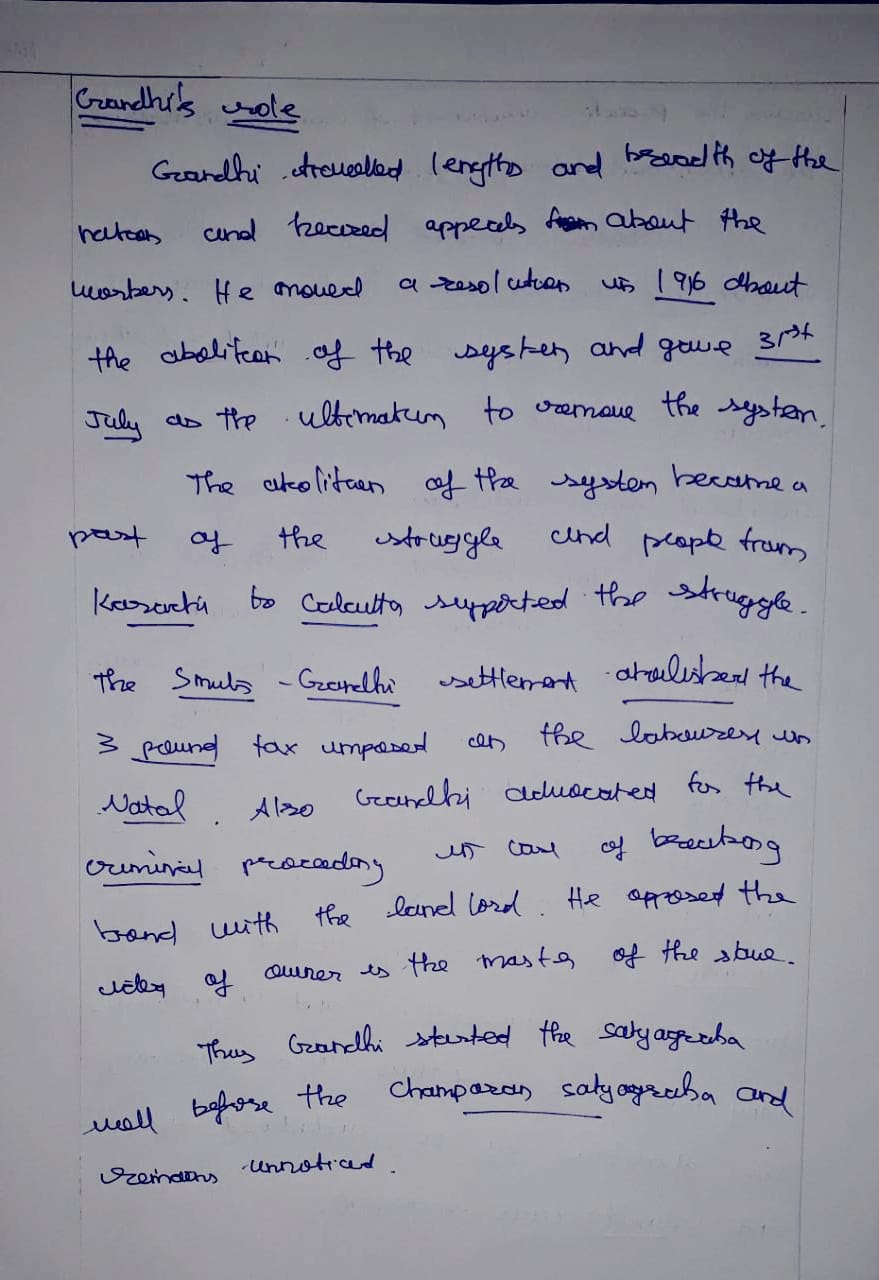 Gandhi's role
Gandhi travelled lengths and breadth of the
nation and heared appeals about the
workers. He moved a resolution in 1916 about
the abolition of the system and gave 31st
July as the ultimatum to remove the system.
The abolition of the system became a
part of the struggle and people from
Karachi to Calcutta supported the struggle.
The Smuts - Gandhi settlement abolished the
3 pound tax imposed on the labourers in
Natal. Also Gandhi advocated for the
criminal proceeding in case of breaking
bond with the land lord. He opposed the
idea of owner is the master of the slave.
Thus Gandhi started the satyagraha
well before the Champaran satyagraha and
remains unnoticed.